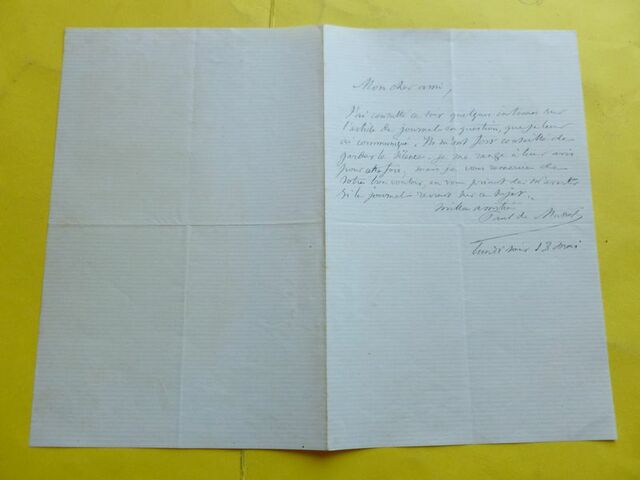 Mon cher ami,
J'ai consulté ce soir quelques intimes sur
l'article de journal en question, que je leur
ai communiqué. Ils m'ont fort conseillé de
garder le silence. je me range à leur avis
pour cette fois, mais je vous remercie de
votre bon vouloir, en vous priant de m'avertir
si le journal revient sur ce sujet.
mille amitiés
Paul de Musset
lundi soir 18 mai